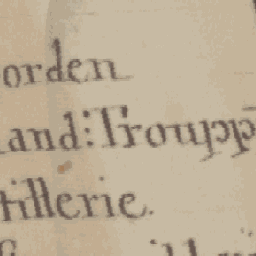 orden
and: Troupp
tillerie.